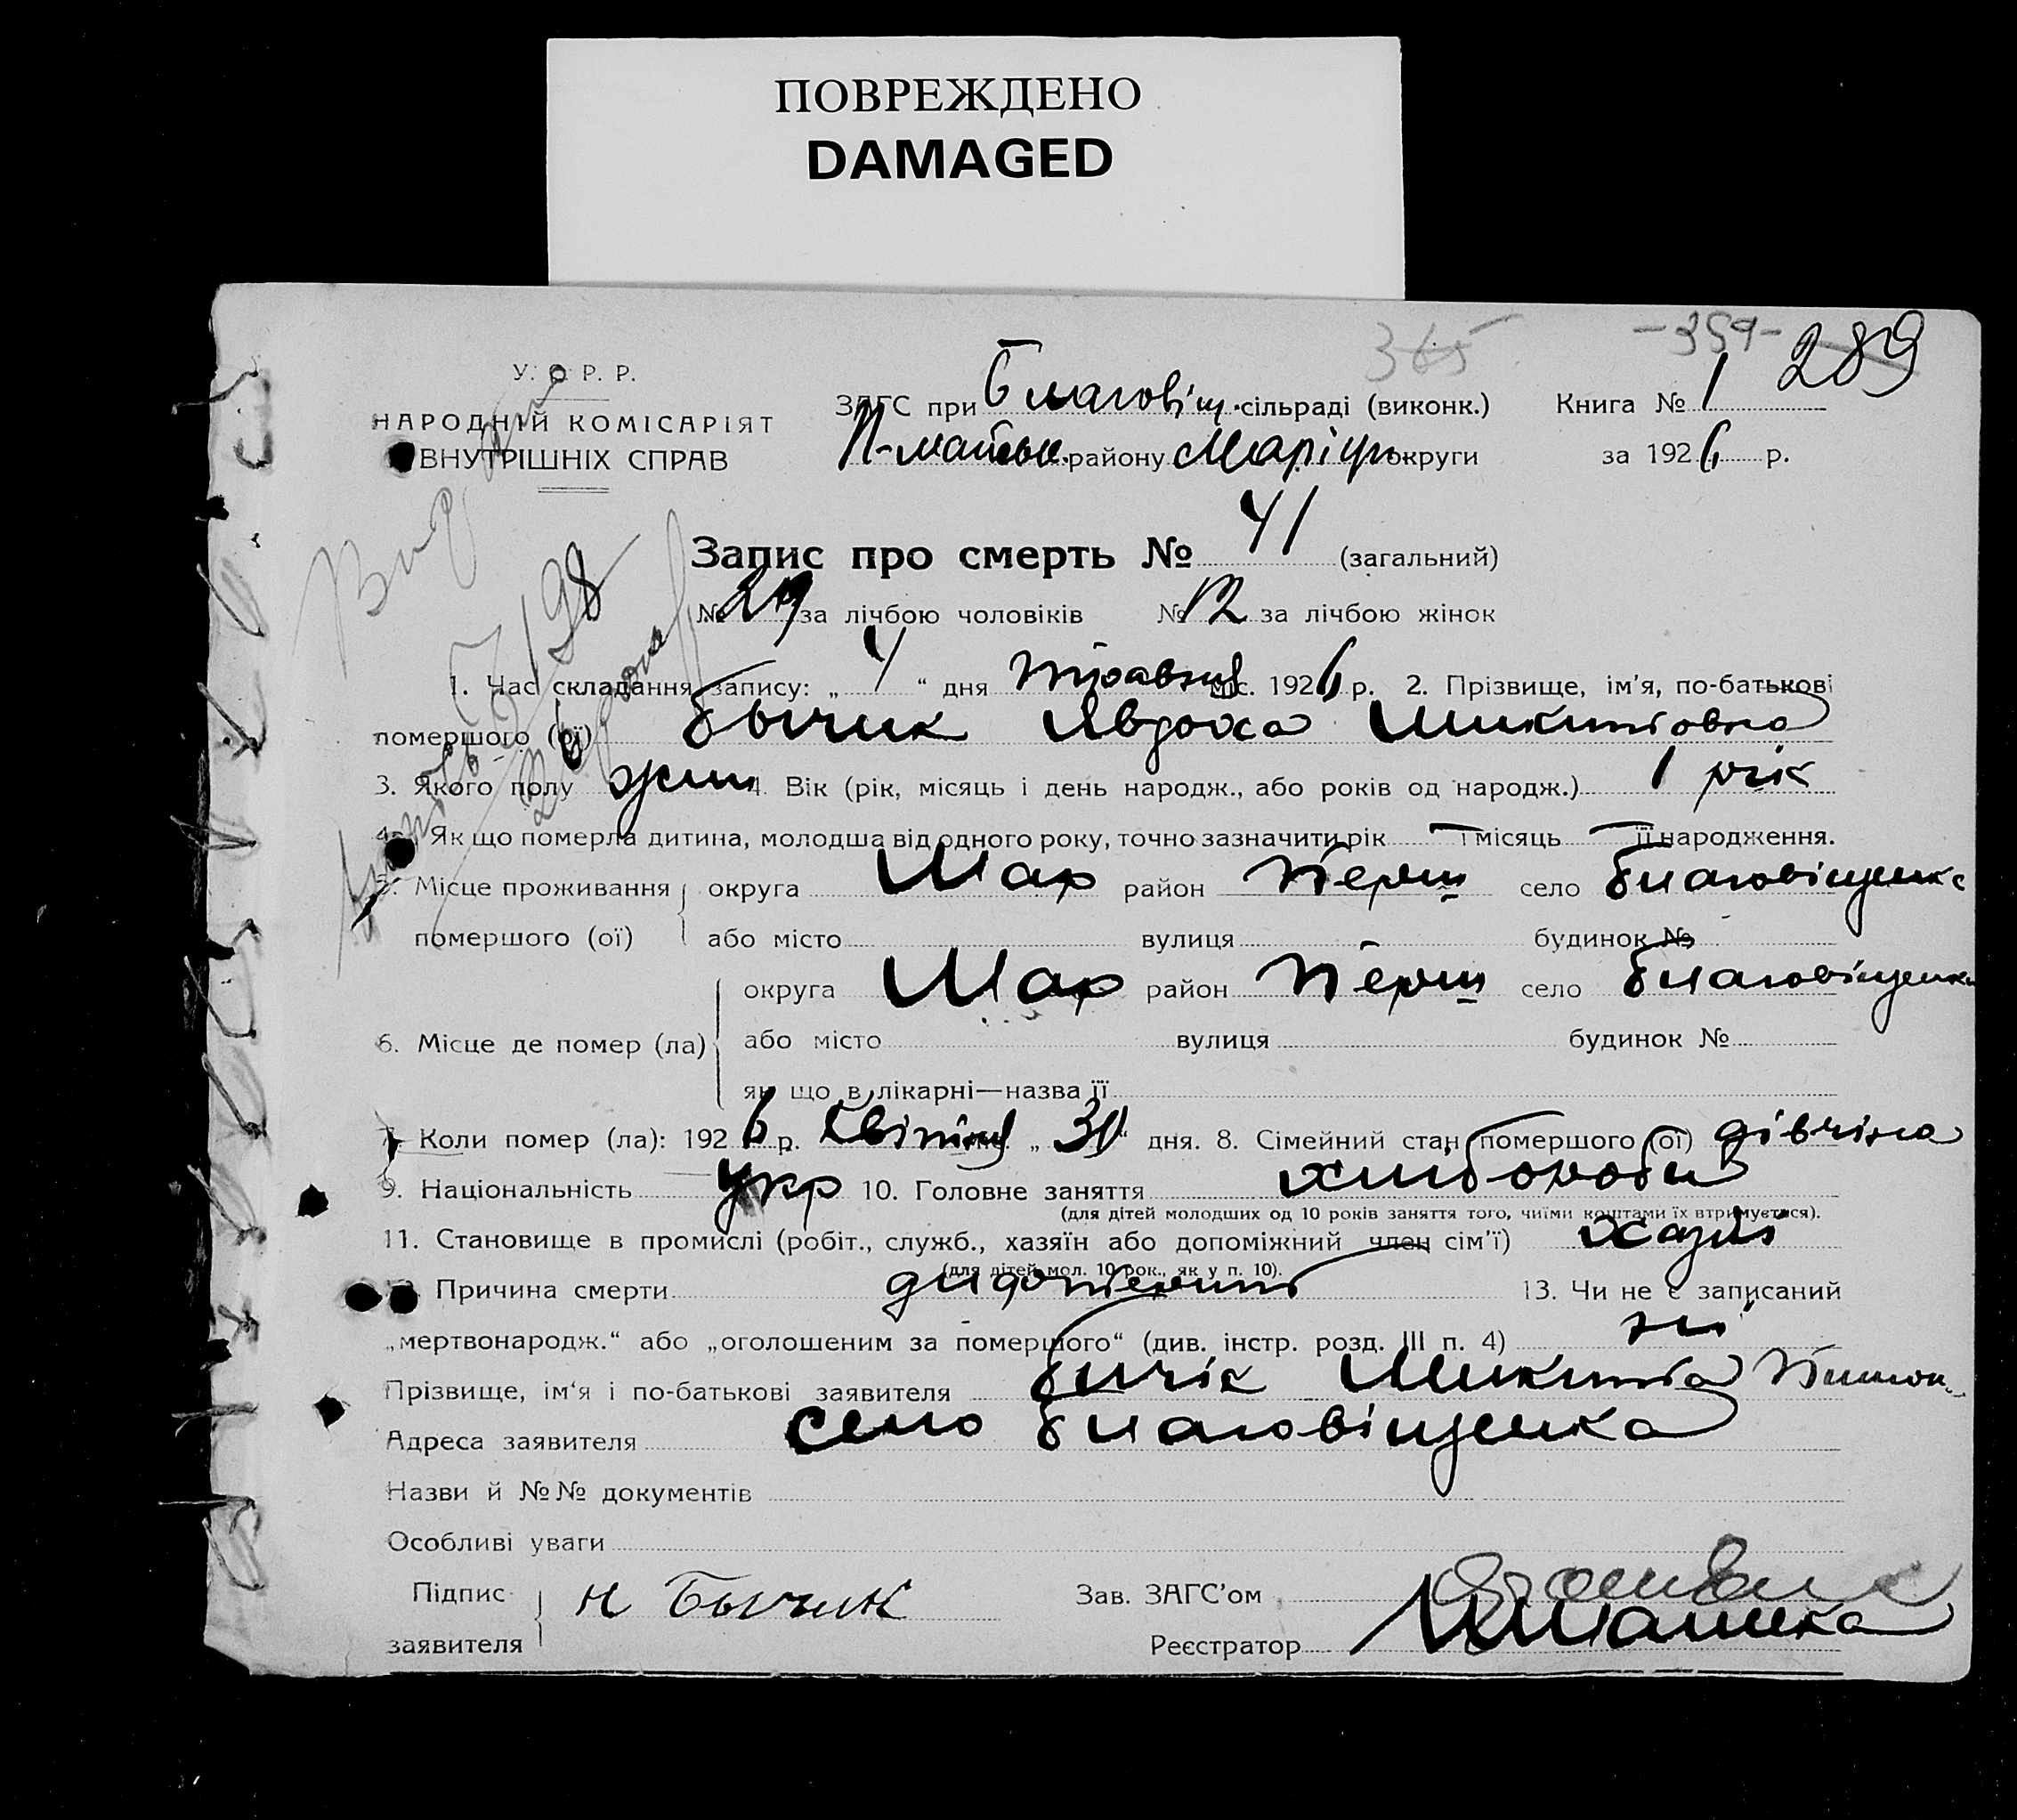 ПОВРЕЖДЕНО
DAMAGED
365 -359- 289
У. С. Р. Р.
НАРОДНІЙ КОМІСАРІЯТ
ВНУТРІШНІХ СПРАВ
ЗАГС при Благовіщ. сільраді (виконк.) Книга № 1
П-майськ. району Маріуп. округи за 1926 р.
Запис про смерть № 41 (загальний)
№ 29 за лічбою чоловіків № 12 за лічбою жінок
1. Час складання запису: „ 4 “ дня травня міс. 1926 р. 2. Прізвище, ім’я, по-батькові
помершого (ої) Бычик Явдоха Микитовна
3. Якого полу жін 4. Вік (рік, місяць і день народж., або років од народж.) 1 рік
Як що померла дитина, молодша від одного року, точно зазначити рік — і місяць — її народження.
5. Місце проживання округа Мар район Перш село Благовіщенка
помершого (ої) або місто вулиця будинок №
округа Мар район Перш село Благовіщенка
6. Місце де помер (ла) або місто вулиця будинок №
як що в лікарні—назва її
7. Коли помер (ла): 1926 р. Квітня міс. „ 30 “ дня. 8. Сімейний стан помершого (ої) дівчіна
9. Національність укр 10. Головне заняття хлібороби
(для дітей молодших од 10 років заняття того, чиїми коштами їх втримується).
11. Становище в промислі (робіт., служб., хазяїн або допоміжний член сім’ї) хазяї
(для дітей мол. 10 рок., як у п. 10).
Причина смерти 13. Чи не є записаний
„мертвонародж.“ або „оголошеним за померщого“ (див. інстр. розд. III п. 4) ні
Прізвище, ім‘я і по-батькові заявителя Бичік Микита
Адреса заявителя село Благовіщенка
Назви й №№ документів
Особливі уваги
Підпис Н Бычик Зав. ЗАГС’ом
заявителя Реєстратор